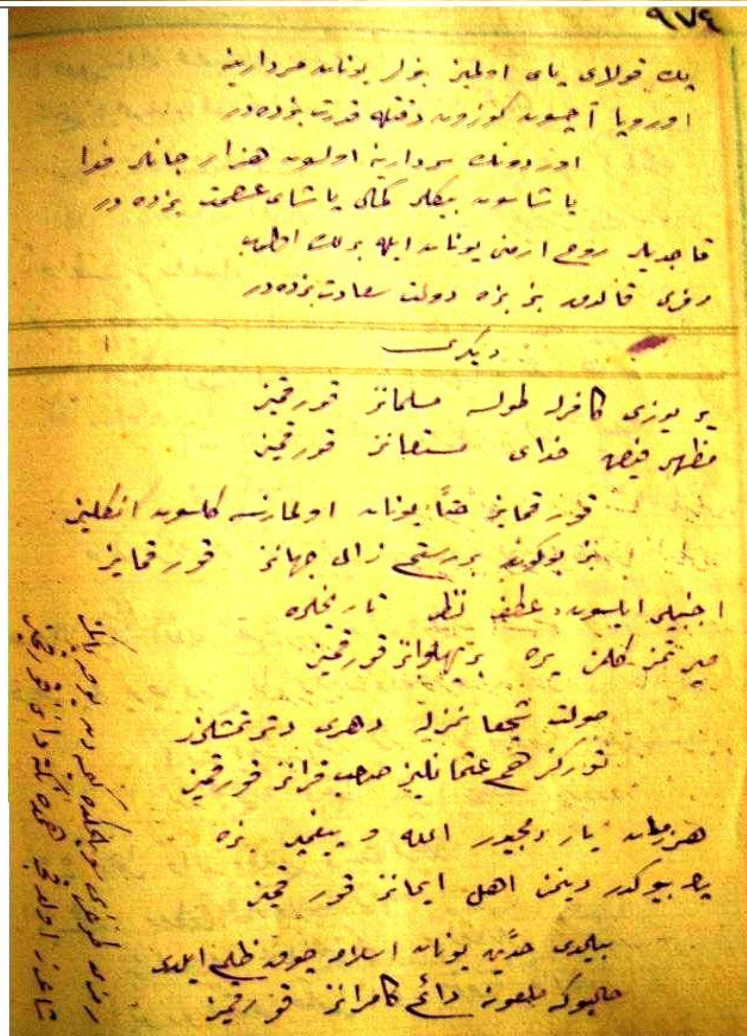 ٩٧٤
پك قولای پای اولمیز بولر یونان سردارینه
اوروپا آچسون كوزون دقتله قدرت بزده در
اوردونك سردارینه اولسون هزار جانلر فدا
یاشاسون بیكلر كمالی یاشای عصمت بزده در
قاچدیلر روم ارمنی یونان ایله برلك
رمزی قالدی بز بزه دولت سعادت بزده در
دیكری
یر یوزی كافرله طولسه مسلمانز قورقمیز
مظهر فیض خدای مستعانز قورقمیز
قورقمایز حتّا یونان اولمازسه كلسون انكلیز
بز بوكون بر رستم زال جهانز قورقمایز
اجنبیلر ایلسون عطف نظر تاریخلره
ویرتمز كلمز یره بر پهلوانز قورقمیز
صولت شجعانمزله دهری دترتمشلرز
توركز هم عثمانلیز صاحب قرانز قورقمیز
هر زمان یار الله و پیغمبر بزه
پك بیوكدر دینمز اهل ایمانز قورقمیز
بیلمدی حدّین یونان اسلامه چوق ظلم ایلدی
چالیوكز ملعونه دائم كامرانز قورقمیز